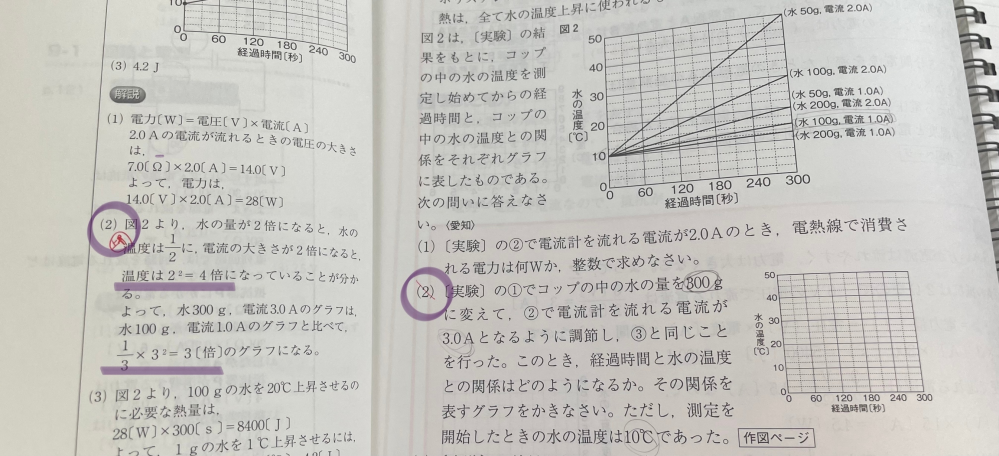 10
0
0 60 120 180 240 300
経過時間〔秒〕
(3) 4.2 J
解説
(1) 電力〔W〕＝電圧〔V〕×電流〔A〕
2.0Aの電流が流れるときの電圧の大きさ
は，
7.0〔Ω〕×2.0〔A〕＝14.0〔V〕
よって，電力は，
14.0〔V〕×2.0〔A〕＝28〔W〕
(2) 図2より，水の量が2倍になると，水の
温度は1/2に，電流の大きさが2倍になると，
温度は2²＝4倍になっていることが分か
る。
よって，水300g，電流3.0Aのグラフは，
水100g，電流1.0Aのグラフと比べて，
1/3×3²＝3〔倍〕のグラフになる。
(3) 図2より，100gの水を20℃上昇させるの
に必要な熱量は，
28〔W〕×300〔s〕＝8400〔J〕
よって，1gの水を1℃上昇させるには，
熱は，全て水の温度上昇に使われる
図2は，〔実験〕の結
果をもとに，コップ
の中の水の温度を測
定し始めてからの経
過時間と，コップの
中の水の温度との関
係をそれぞれグラフ
に表したものである。
次の問いに答えなさ
い。〈愛知〉
図2
水の温度〔℃〕
50
40
30
20
10
0
0 60 120 180 240 300
経過時間〔秒〕
(水 50g, 電流 2.0A)
(水 100g, 電流 2.0A)
(水 50g, 電流 1.0A)
(水 200g, 電流 2.0A)
(水 100g, 電流 1.0A)
(水 200g, 電流 1.0A)
(1) 〔実験〕の②で電流計を流れる電流が2.0Aのとき，電熱線で消費さ
れる電力は何Wか，整数で求めなさい。
(2) 〔実験〕の①でコップの中の水の量を300g
に変えて，②で電流計を流れる電流が
3.0Aとなるように調節し，③と同じこと
を行った。このとき，経過時間と水の温度
との関係はどのようになるか。その関係を
表すグラフをかきなさい。ただし，測定を
開始したときの水の温度は10℃であった。 作図ページ
水の温度〔℃〕
50
40
30
20
10
0
0 60 120 180 240 300
経過時間〔秒〕